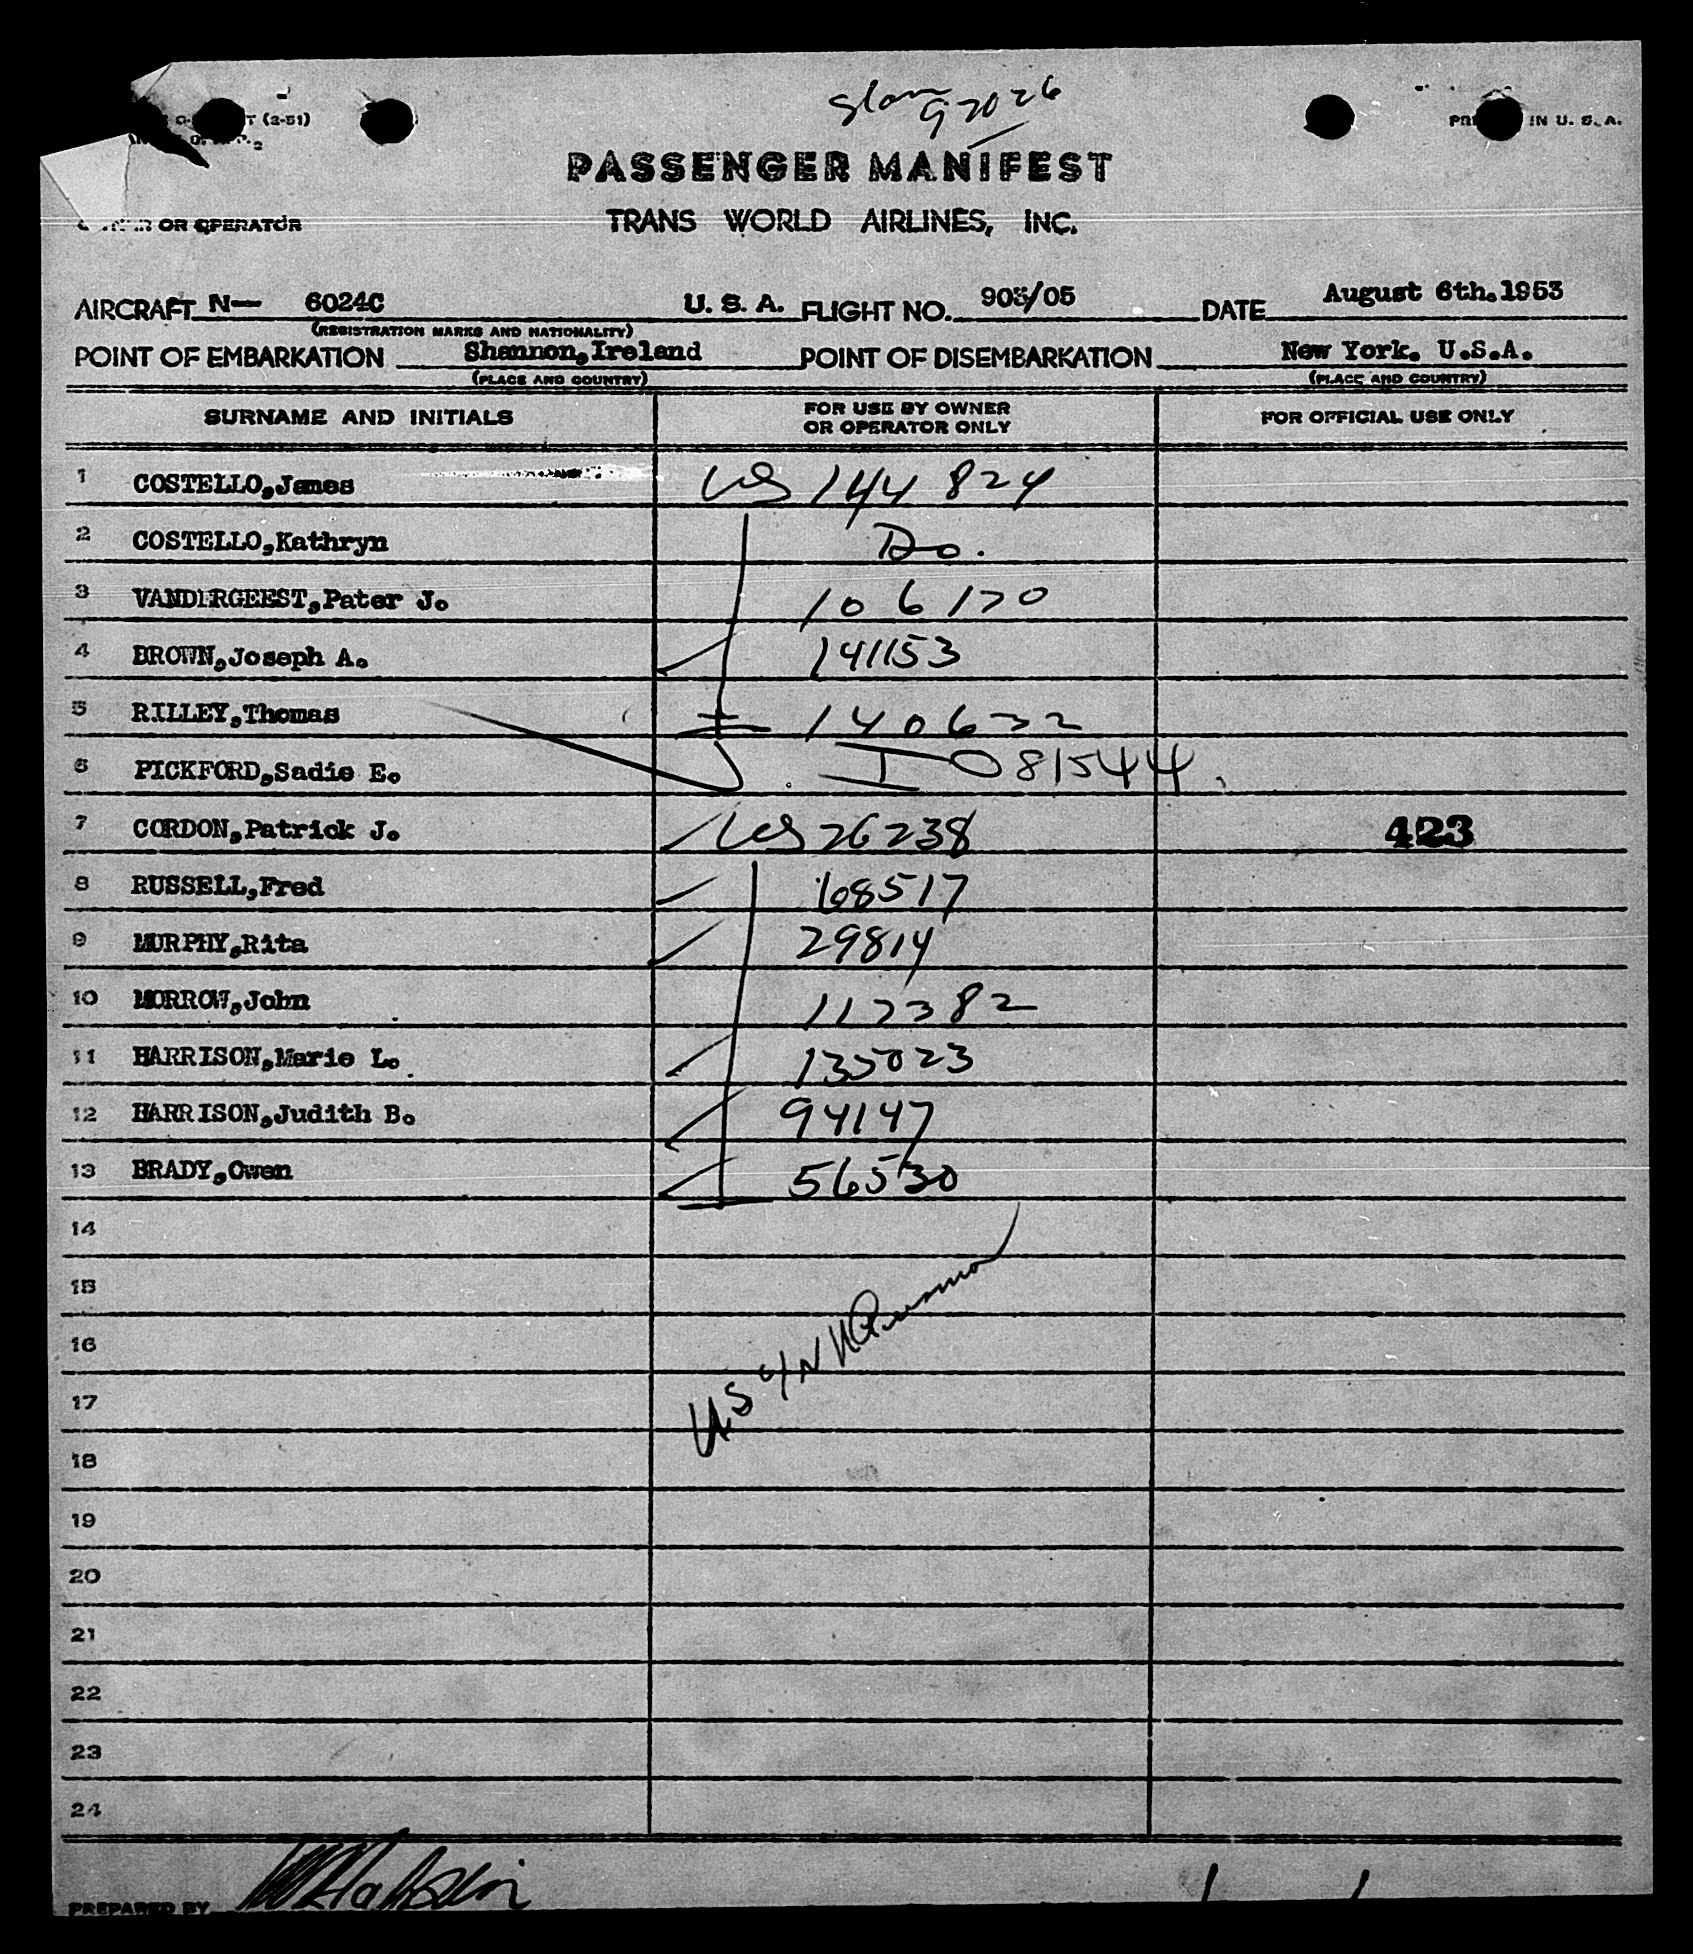 T (2-51)
PRI IN U. S. A.
PASSENGER MANIFEST
OR OPERATOR TRANS WORLD AIRLINES, INC.
AIRCRAFT N— 6024C U. S. A. FLIGHT NO. 903/05 DATE August 6th.1953
(REGISTRATION MARKS AND NATIONALITY)
POINT OF EMBARKATION Shannon,Ireland POINT OF DISEMBARKATION New York. U.S.A.
(PLACE AND COUNTRY) (PLACE AND COUNTRY)
SURNAME AND INITIALS FOR USE BY OWNER OR OPERATOR ONLY FOR OFFICIAL USE ONLY
1 COSTELLO,James US 144824
2 COSTELLO,Kathryn Do.
3 VANDERGEEST,Pater J. 106170
4 BROWN,Joseph A. 141153
5 RILLEY,Thomas 140632
6 PICKFORD,Sadie E. I-081544
7 CORDON,Patrick J. US 26238 423
8 RUSSELL,Fred 168517
9 MURPHY,Rita 29814
10 MORROW,John 117382
11 HARRISON,Marie L. 135023
12 HARRISON,Judith B. 94147
13 BRADY,Owen 56530
14
15
16
17
18
19
20
21
22
23
24
PREPARED BY